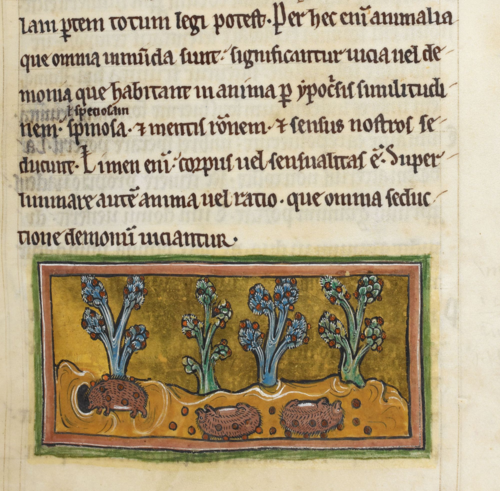 iam ptem totum legi potest. Per hec eni animalia
que omnia inmuda sunt. significantur uicia uel de
monia que habitant in anima p ypocsis similitudi
l speciosam
nem. spinosa. ⁊ mentis ronem. ⁊ sensus nostros se
ducunt. Limen eni. corpus uel sensualitas e. Super
luminare aute anima uel ratio. que omnia seduc
tione demoniu uiciantur.